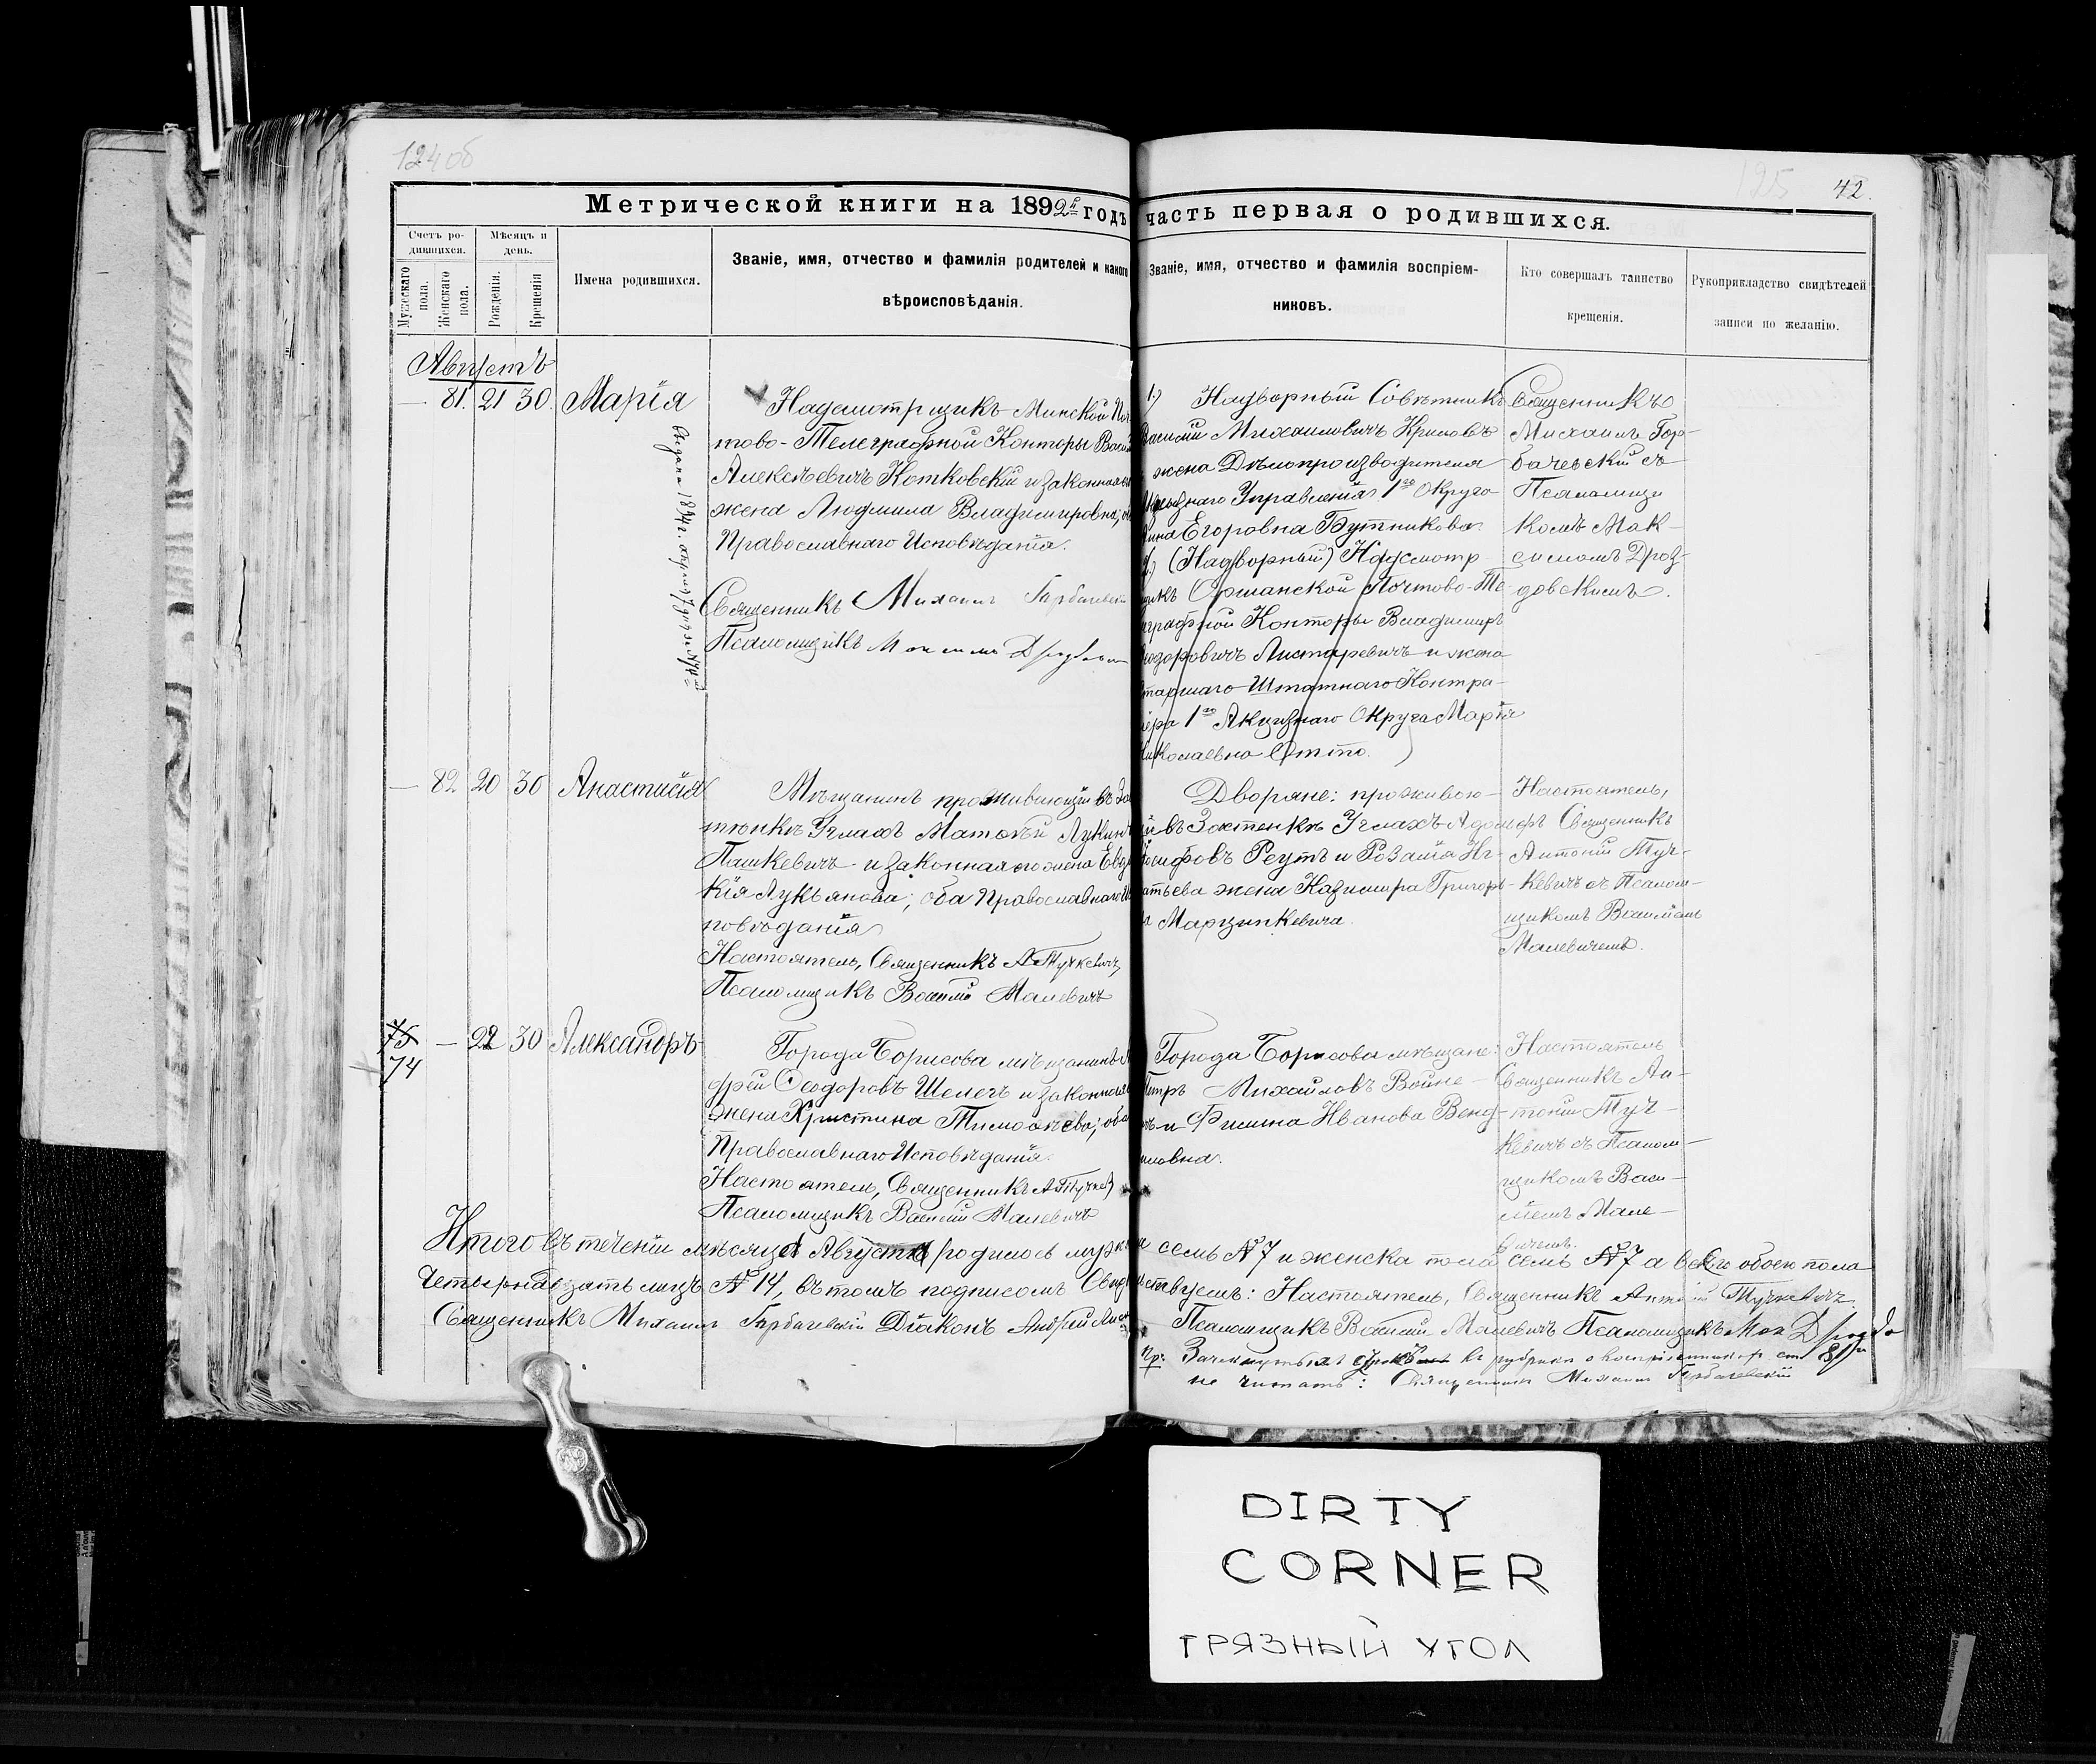 124 об
125
42.
Метрической книги на 1892й годъ часть первая о родившихся.
Счетъ родившихся.
Мужескаго пола.
Женскаго пола.
Мѣсяцъ и день.
Рожденія.
Крещенія
Имена родившихся.
Званіе, имя, отчество и фамилія родителей и какого
вѣроисповѣданія.
Званіе, имя, отчество и фамилія воспріем-
никовъ.
Кто совершалъ таинство
крещенія.
Рукоприкладство свидѣтелей
записи по желанію.
Августъ
— 81. 21 30. Марія
Надсмотрщикъ Минской Поч
тово-Телеграфной Конторы Васил
Алексѣевичъ Котковскій и законная
жена Людмила Владимировна; об
Православнаго Исповѣданія.
Священникъ Михаилъ Горбачевскі
Псаломщикъ Максимъ Дроздов
1.) Надворный Совѣтникъ
Василій Михаиловичъ Крыловъ
жена Дѣлопроизводителя
Акцизнаго Управленія 1го Округа
Егоровна Бутникова
2.) (Надворный) Надсмотр
щикъ Оршанской Почтово-Те
леграфной Конторы Владимиръ
Ѳеодоровичъ Листаревичъ и жена
старшаго Штатнаго Контра-
лера 1го Акцизнаго Округа Марія
Николаевна Отто.)
Священникъ
Михаилъ Гор-
бачевскій съ
Псаломщи
комъ Мак-
симомъ Дроз-
довскимъ.
— 82 20 30 Анастасія
Мѣщанинъ проживающій въ За
стѣнкѣ Углахъ Матвѣй Лукинъ
Пашкевичъ и законная его жена Евдо
кія Лукьянова; оба Православнаго Ис
повѣданія
Настоятель, Священникъ А Тучкевичъ
Псаломщикъ Василій Малевичъ
Дворяне: проживаю-
щій въ Застенкѣ Углахъ Адольфъ
Іосифовъ Реутъ и Розалія Иг-
натьева жена Казимира Григорь-
ва Марцинкевича.
Настоятель,
Священникъ
Антоній Туч-
кевичъ съ Псалом-
щикомъ Василіемъ
Малевичемъ.
75
74 — 22 30 Александръ
Города Борисова мѣщанинъ
дрей Ѳеодоровъ Шелегъ и законная
жена Христина Тимоѳеева; оба
Православнаго Исповѣданія
Настоятель, Священникъ А Тучкев
Псаломщикъ Василій Малевичъ
Города Борисова мѣщане:
Петръ Михайловъ Войне-
чъ и Фимина Иванова Венд-
иловна.
Настоятель
Священникъ Ан-
тоній Туч-
кевичъ съ Псалом-
щикомъ Васи-
ліемъ Мале-
вичемъ.
Итого въ теченіи мѣсяца Августа родилось мужска семь №7 и женска пола семь №7 а всего обоего пола
четырнадцать лицъ №14, въ томъ подписомъ Свидѣтельствуемъ: Настоятель, Священникъ Антоній Тучкевичъ
Священникъ Михаилъ Горбачевскій Діаконъ Андрей
Псаломщикъ Василій Малевичъ Псаломщикъ Мак Дроздо
Пр: Зачеркнутыхъ въ рубрикѣ о воспріемникахъ ст 81й
не читать: Священникъ Михаилъ Горбачевскій
DIRTY
CORNER
ГРЯЗНЫЙ УГОЛ